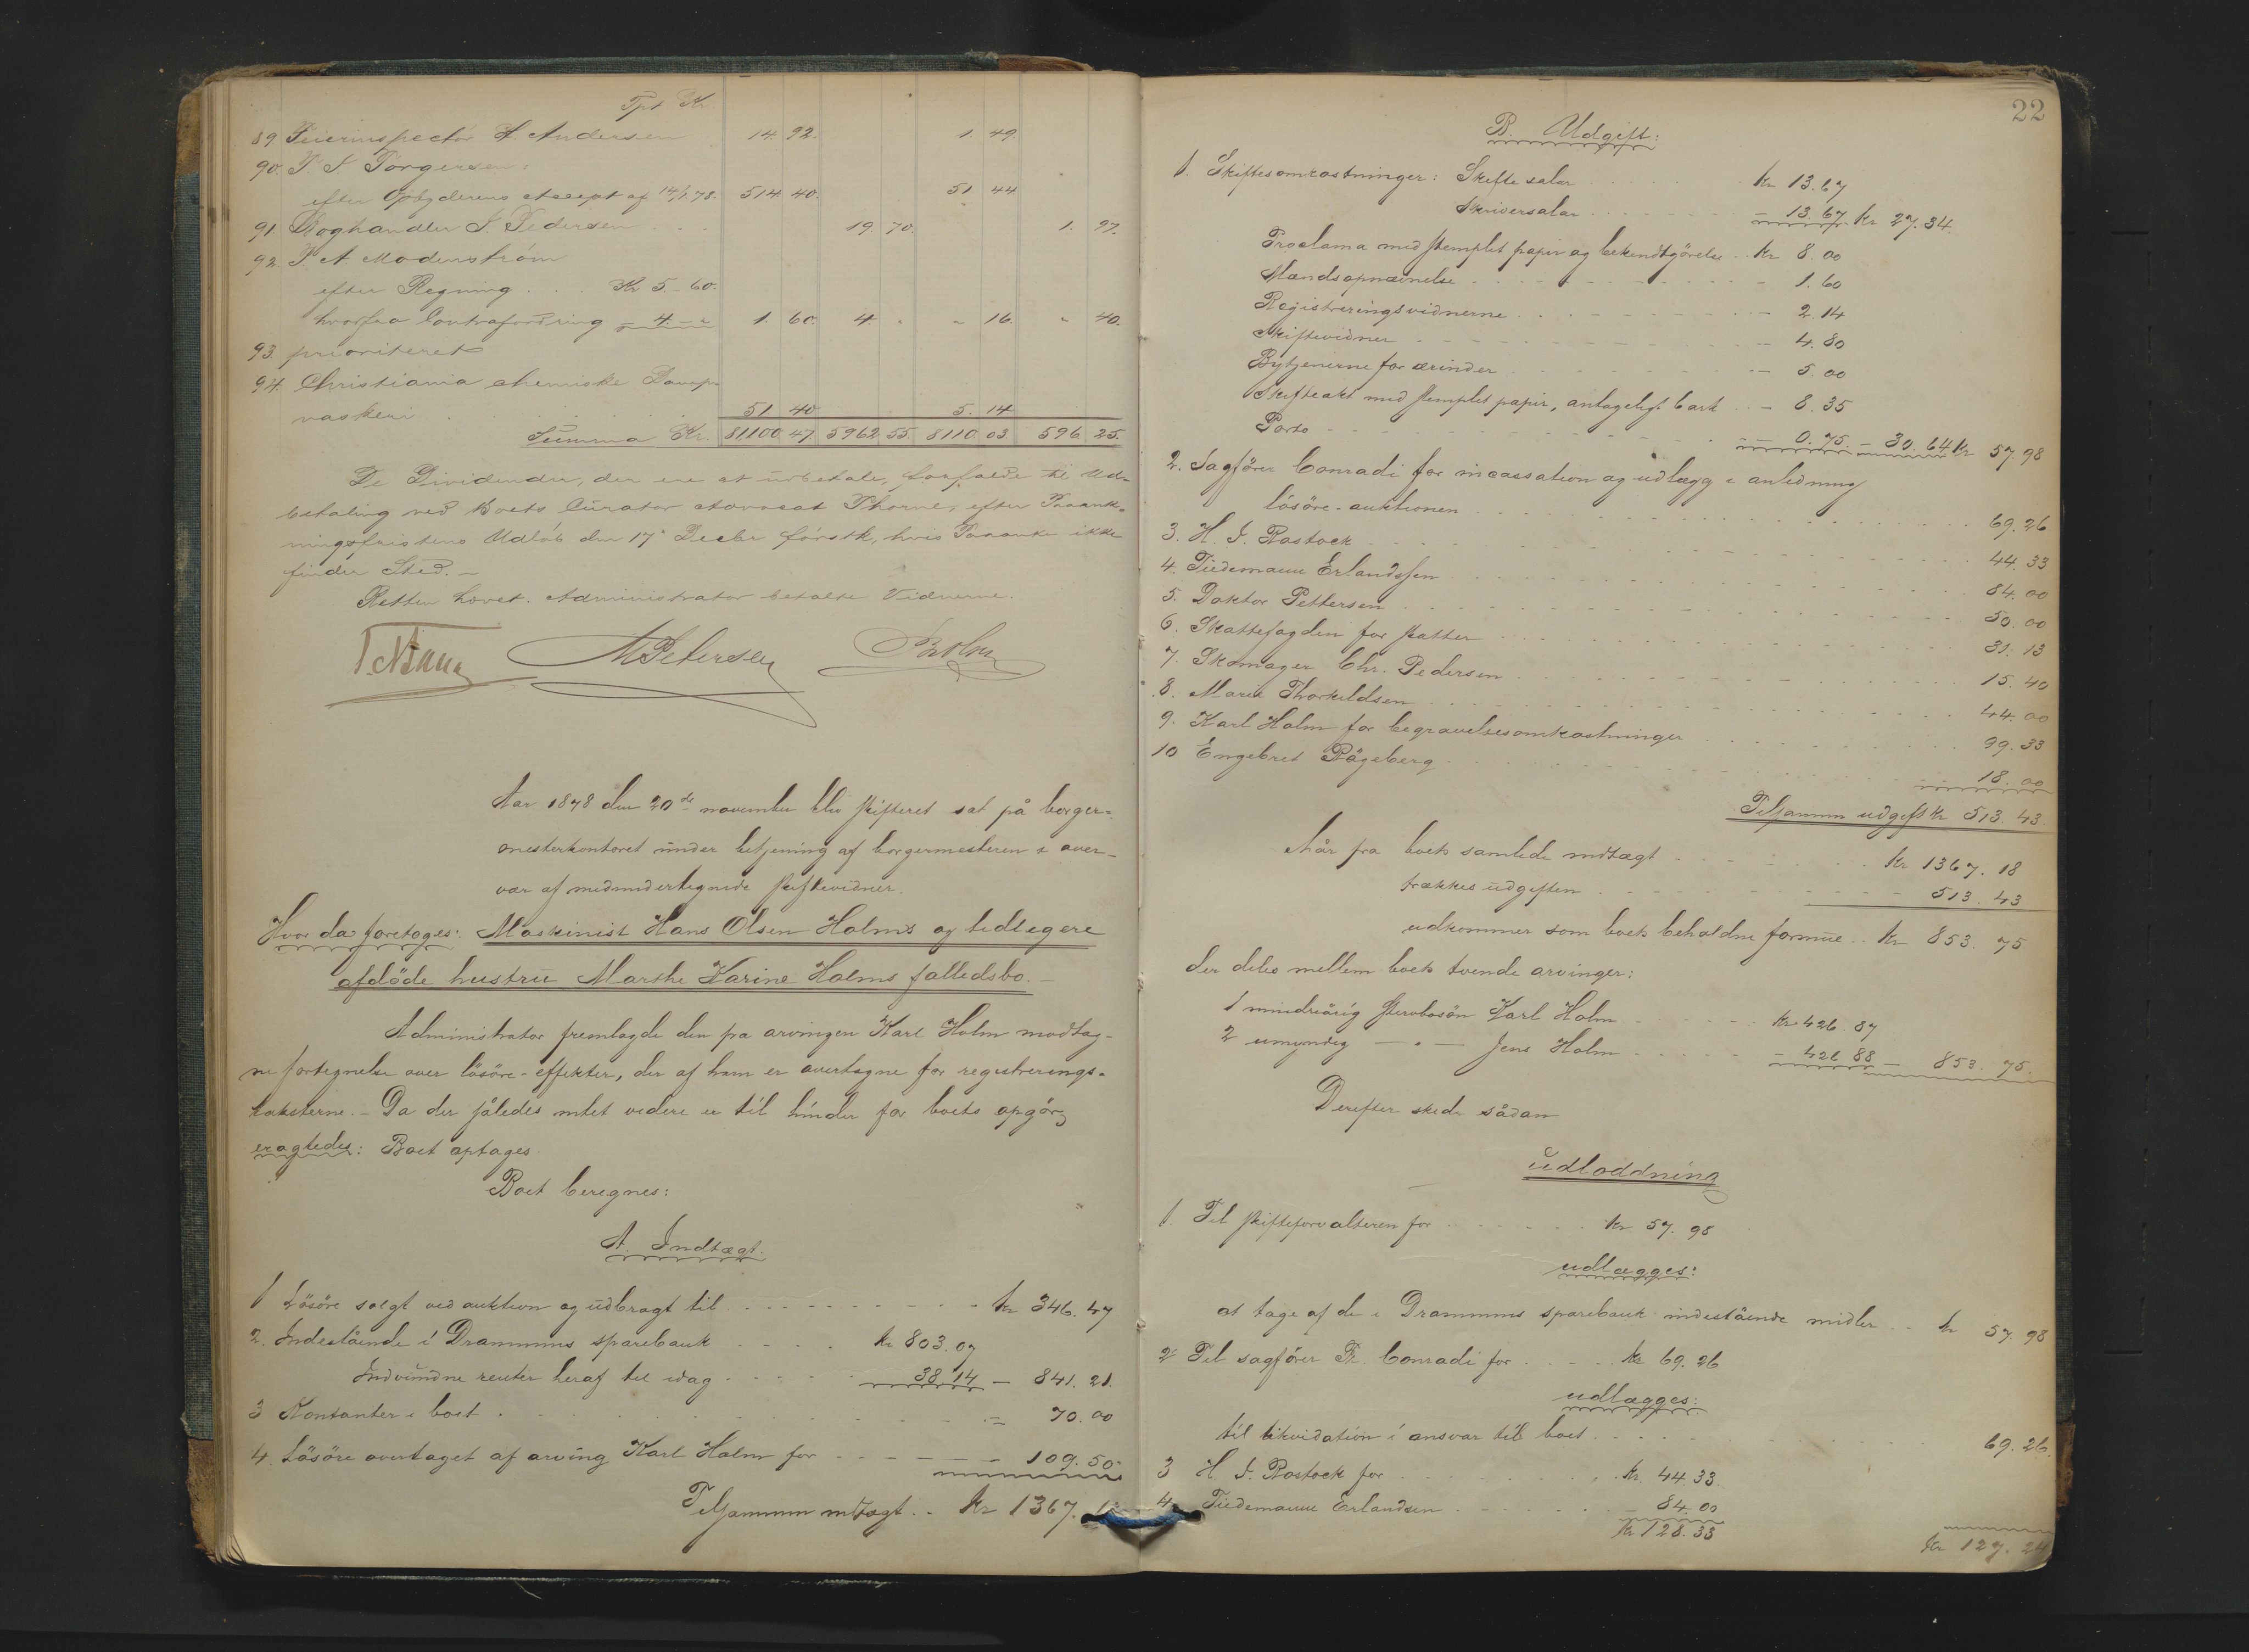 Tpt Kr.
89 Feierinspector H. Andersen 14 92. 1. 49
90. P. N. Torgersen:
efter Opbyderens Accept af 14/1 78. 514 40. 51 44
91 Boghandler J. Pedersen 19. 70. 1. 97.
92. P. A. Modenström
efter Regning . . . Kr 5.-60.
hvorfra Contrafordring - 4. - " 1. 60. 4. " " 16. " 40.
93. prioriteret
94. Christiania chemiske Damp-
vaskeri . . . . . . 51 40 5. 14
Summa Kr. 81100 47 5962 55. 8110. 03. 596. 25.
De Dividender, der ere at udbetale, forfalde til Ud-
betaling ved Boets Curator Advocat Thorne, efter Paaank-
ningsfristens Udløb den 17de Decbr førstk, hvis Paaanke ikke
finder Sted. -
Retten hævet. Administrator betalte Vidnerne.
M Petersen Holm
Aar 1878 den 20de november blev skifteret sat på borger-
mesterkontoret under betjening af borgermesteren i over-
vær af medundertegnede skiftevidner.
Hvor da foretoges: Maskinist Hans Olsen Holms og tidligere
afdöde hustru Marthe Karine Holms fælledsbo. -
Administrator fremlagde den fra arvingen Karl Holm modtag-
ne fortegnelse over lösöre-effekter, der af ham er overtagne for registrerings-
taksterne. - Da der således intet videre er til hinder for boets opgjör,
eragtedes: Boet optages.
Boet beregnes:
A. Indtægt.
1 Lösöre solgt ved auktion og udbragt til . . . . . . kr 346. 47
2. Indestående i Drammens sparebank . . . . kr 803. 07
Indvundne renter heraf til idag . . . . . 38. 14 - 841. 21.
3 Kontanter i boet . . . . . . - 70. 00
4. Lösöre overtaget af arving Karl Holm for - - - - - - 109. 50.
Tilsammen indtægt . . Kr 1367. 1
22
B. Udgift:
1. Skiftesomkostninger: Skiftesalær . . . . . . Kr 13. 67
Skriversalær . . . . . . - 13. 67 Kr 27. 34.
Proclama med stemplet papir og bekendtgörelse . . Kr 8. 00
Mandsopnævnelse . . . . . . - 1. 60
Registreringsvidnerne . . . . . . - 2. 14
Skiftevidner . . . . . . - 4. 80
Bytjenerne for ærinder . . . . . . - 5. 00
Skifteakt med stemplet papir, antageligt bart . . - 8. 35
Porto . . . . . . - 0. 75. - 30. 64 Kr 57. 98
2. Sagförer Conradi for incassation og udlægg i anledning
lösöre-auktionen . . . . . . 69. 26
3. H. J. Rostock . . . . . . 44. 33
4. Tiedemann Erlandssen . . . . . . 84. 00
5. Doktor Pettersen . . . . . . 50. 00
6. Skattefogden for skatter . . . . . . 31. 13
7. Skomager Chr. Pedersen . . . . . . 15. 40
8. Marie Thorkildsen . . . . . . 44. 00
9. Karl Holm for begravelsesomkostninger . . . . . . 99. 33
10 Engebret Rågeberg . . . . . . 18. 00
Tilsammen udgift Kr 513. 43.
Når fra boets samlede indtægt . . . . . . Kr 1367. 18
trækkes udgiften . . . . . . 513. 43
udkommer som boets beholdne formue . . Kr 853. 75
der deles mellem boets tvende arvinger:
1 mindreårig stervbosön Karl Holm . . . . . . Kr 426. 87
2 umyndig - " - Jens Holm . . . . . - 426 88 - 853. 75.
Derefter skede sådan
Udloddning
1. Til skifteforvalteren for . . . . . . Kr 57. 98
udlægges:
at tage af de i Drammens sparebank indestående midler . . Kr 57. 98
2 Til sagförer Th. Conradi for . . . . Kr 69. 26
udlægges:
til likvidation i ansvar til boet . . . . . . 69. 26.
3 H. J. Rostock for . . . . . . Kr. 44. 33.
4. Tiedemann Erlandsen . . . . . . - 84. 00
Kr 128. 33
Kr 127. 24